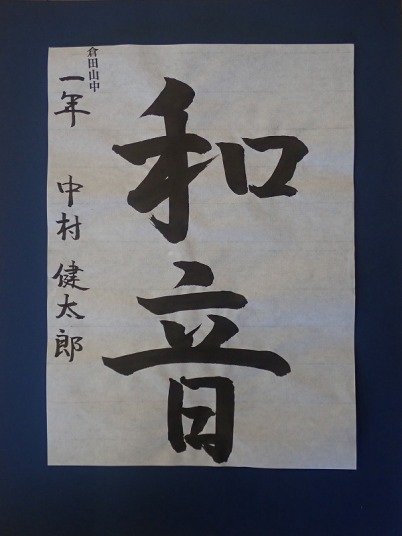 和音
倉田山中
一年 中村 健太郎